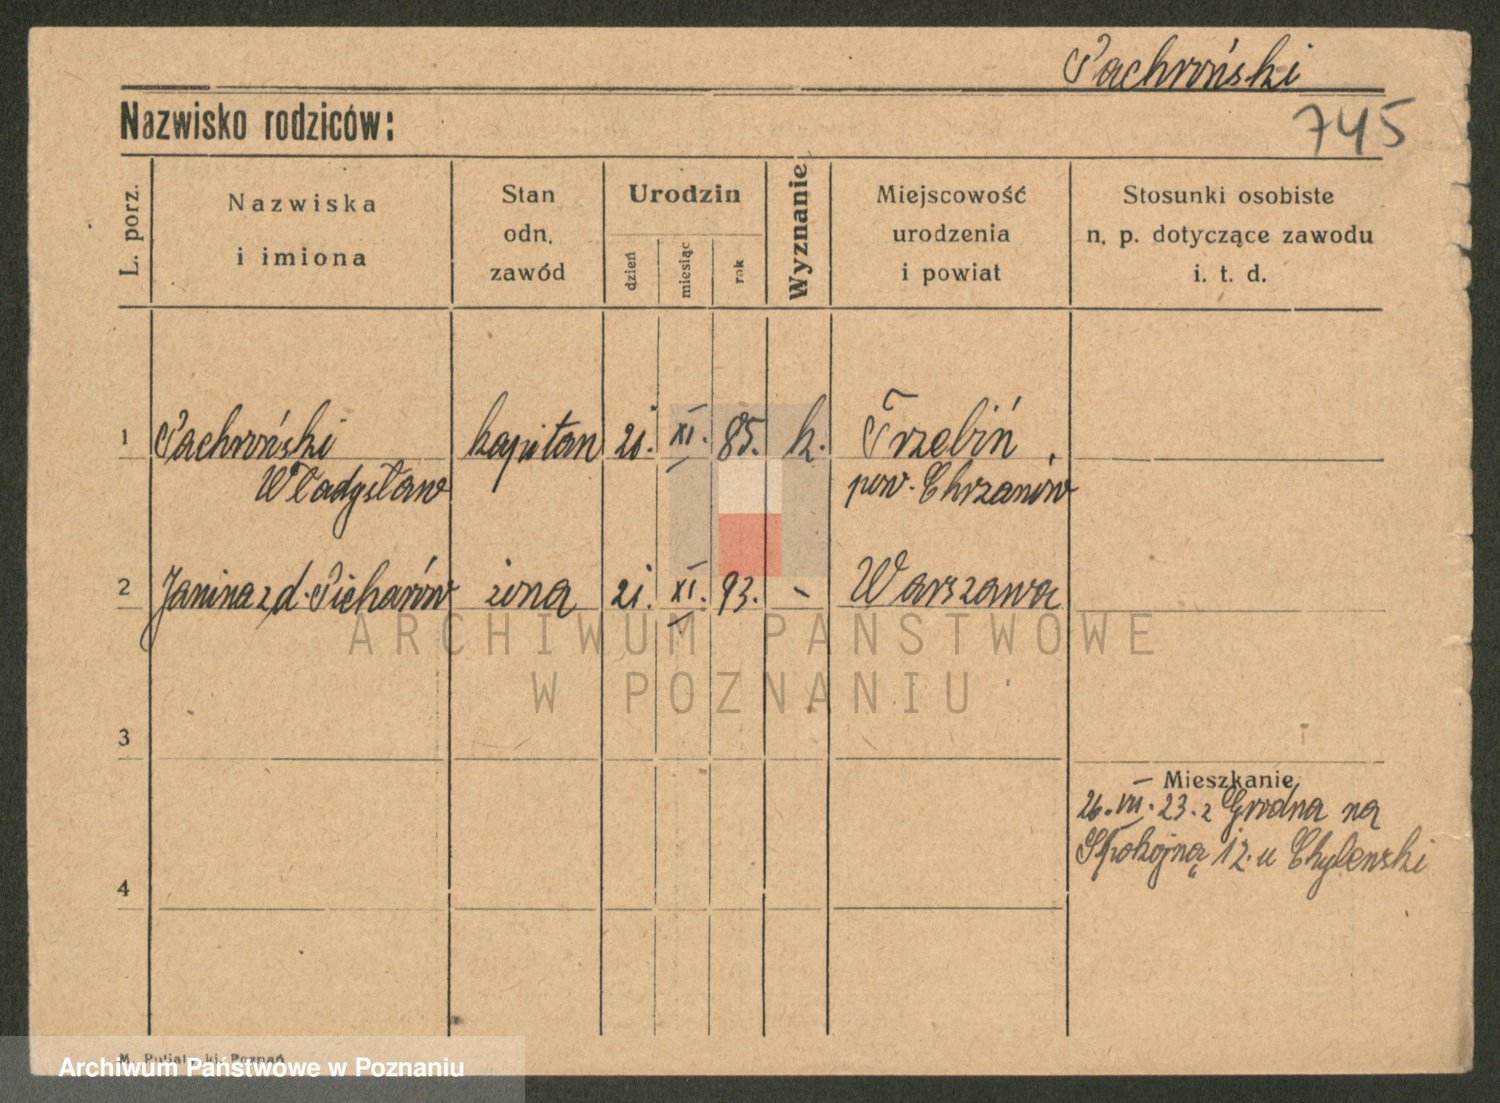 Pachroński
745
Nazwisko rodziców:
L. porz.
Nazwiska
i imiona
Stan
odn.
zawód
Urodzin
dzień
miesiąc
rok
Wyznanie
Miejscowość
urodzenia
i powiat
Stosunki osobiste
n. p. dotyczące zawodu
i. t. d.
1 Pachroński kapitan 21. XI. 85. k. Trzebiń,
Władysław pow. Chrzanów
2 Janina z d. Picharów żona 21. XI. 93. – Warszawa
ARCHIWUM PAŃSTWOWE
W POZNANIU
3
Mieszkanie
26. VII. 23. z Grodna na
Spokojną 12. u Chylewski
4
M. Putiat, kj. Poznań
Archiwum Państwowe w Poznaniu